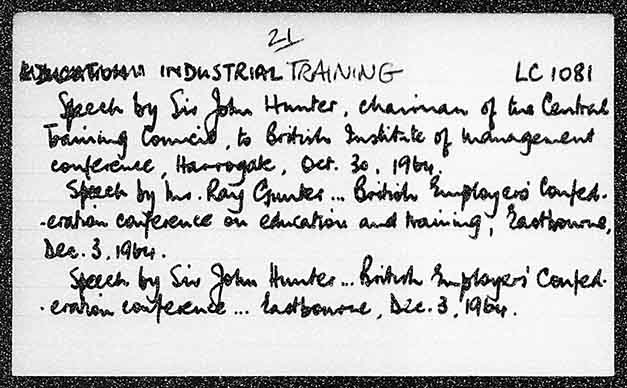 21
INDUSTRIAL TRAINING LC 1081
Speech by Sir John Hunter, chairman of the Central
Training Council, to British Institute of Management
conference, Harrogate, Oct. 30, 1964.
Speech by Mr. Ray Gunter... British Employers' Confed-
-eration conference on education and training, Eastbourne,
Dec. 3, 1964.
Speech by Sir John Hunter... British Employers' Confed-
-eration conference ... Eastbourne, Dec. 3, 1964.